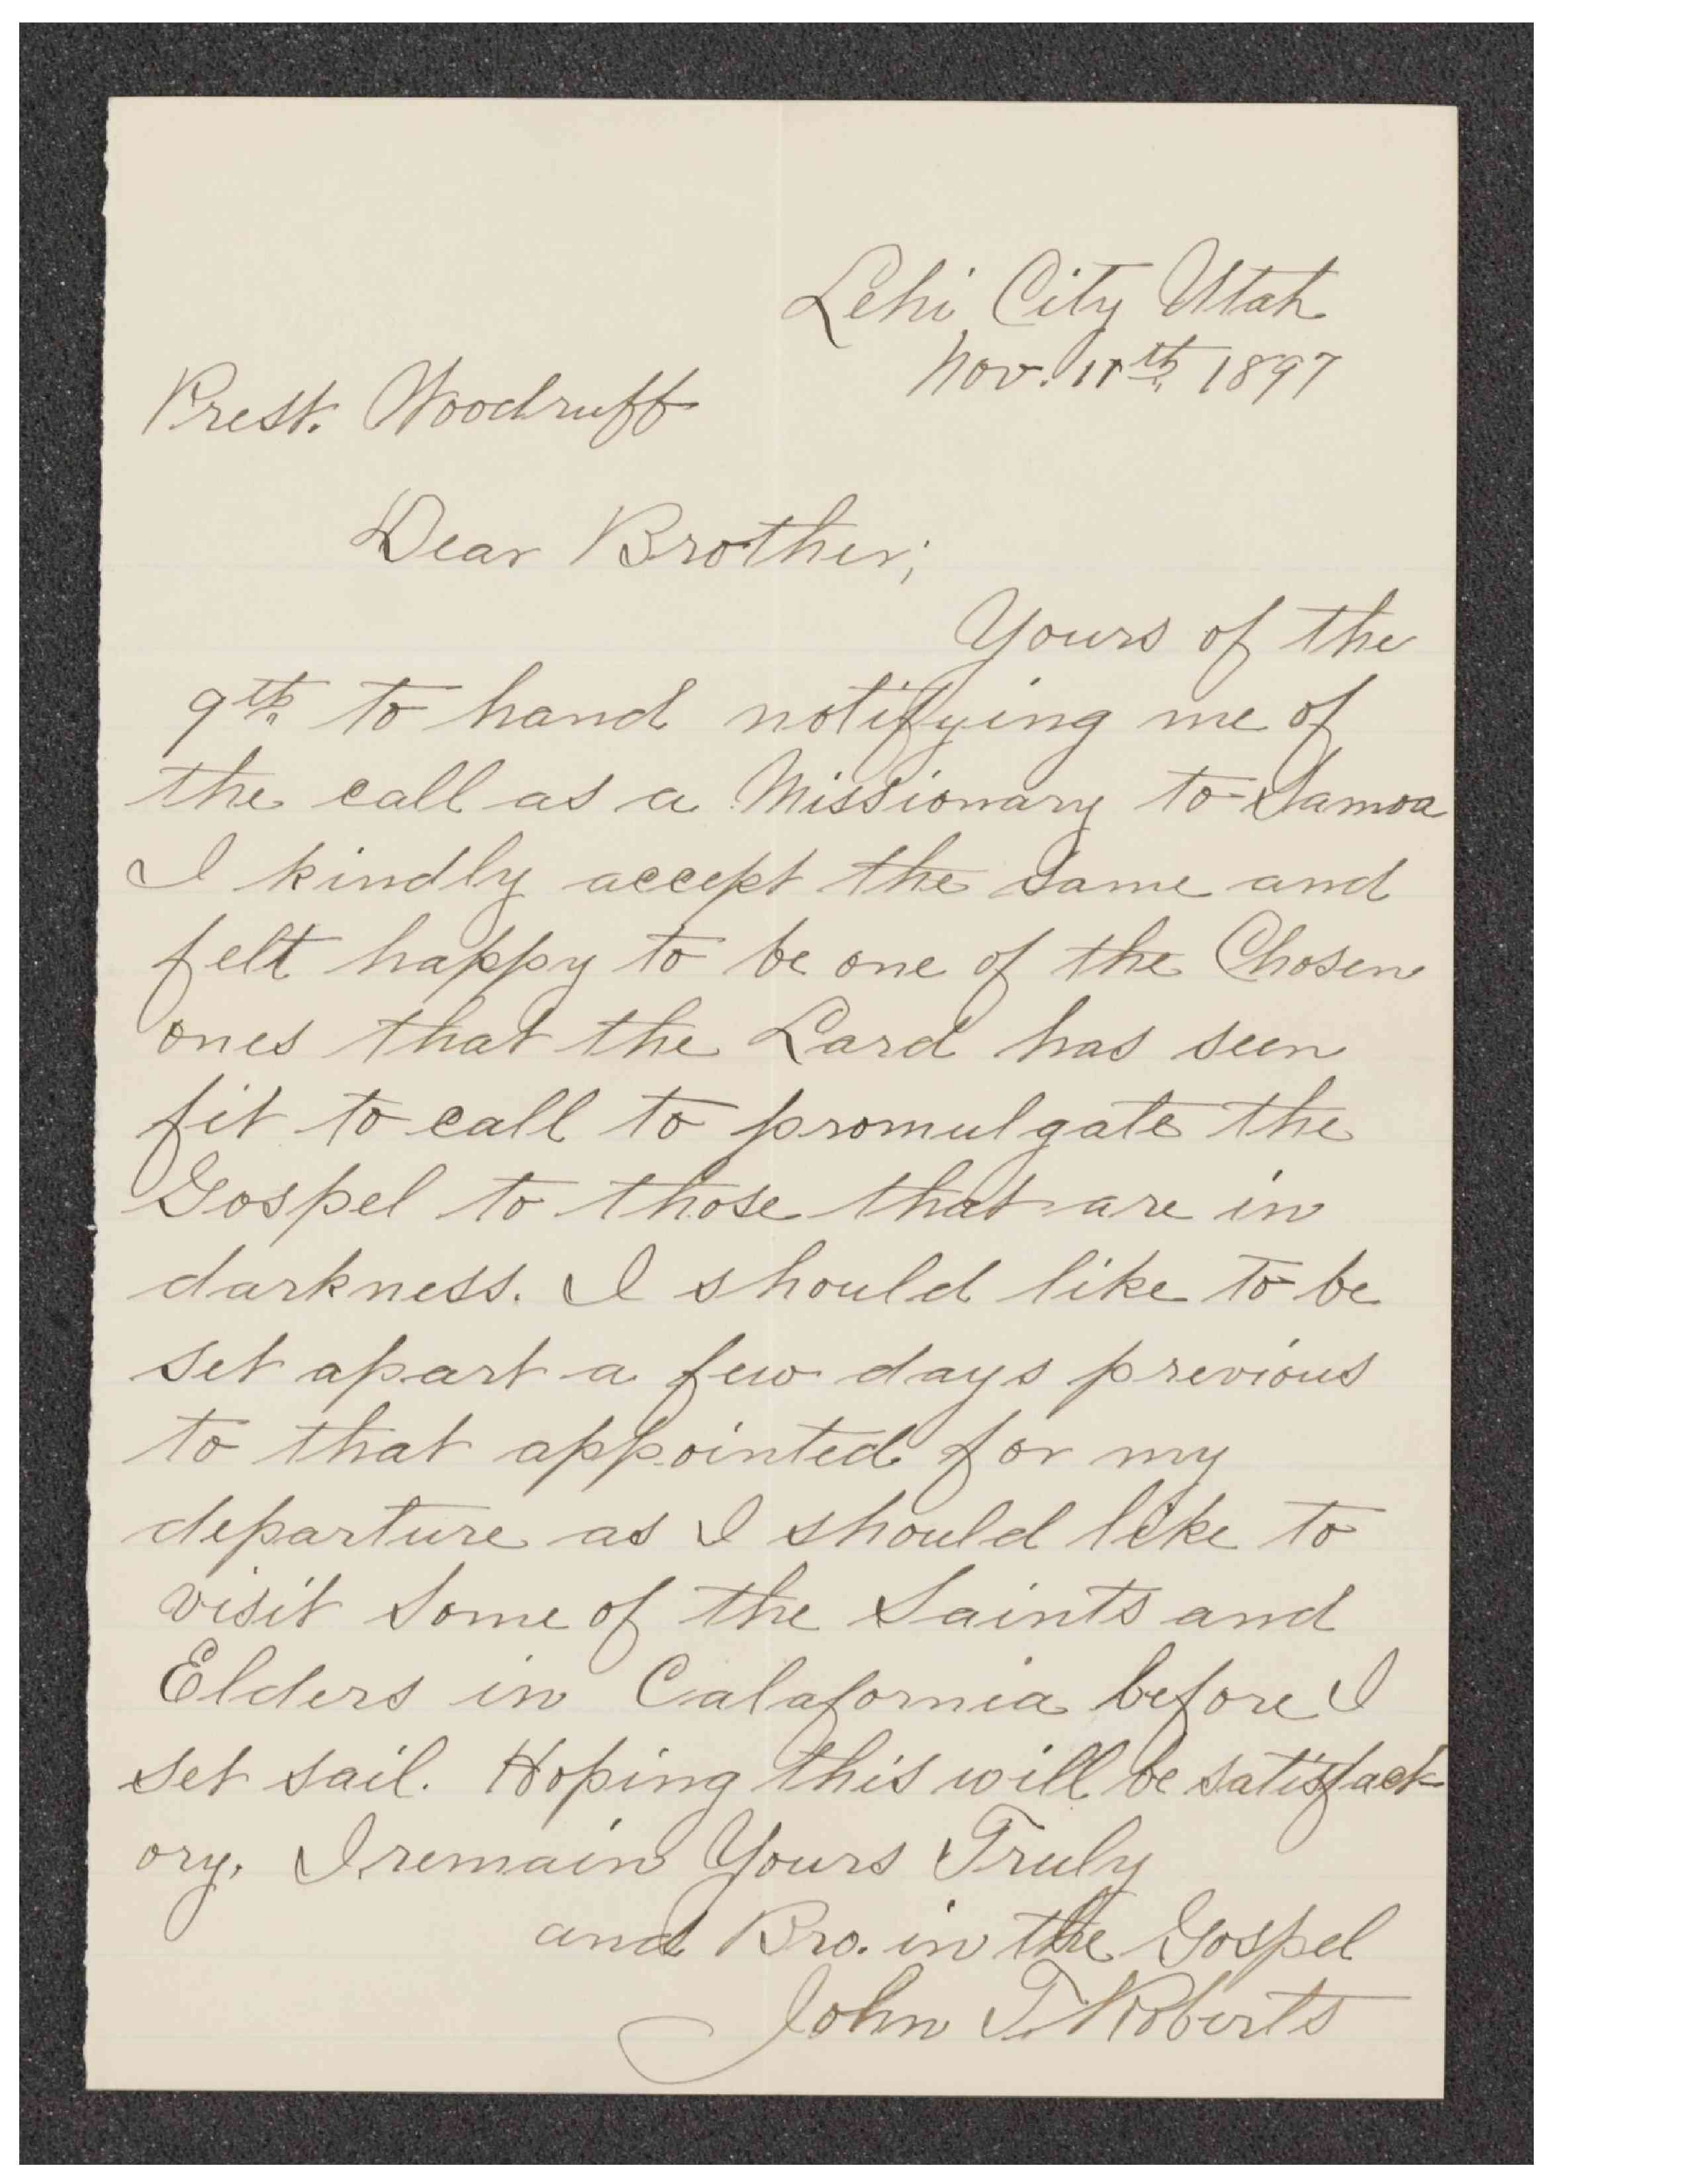 Lehi City Utah
Nov. 11th 1897
Prest. Woodruff
Dear Brother;
Yours of the
9th to hand notifying me of
the call as a Missionary to Samoa
I kindly accept the same and
felt happy to be one of the Chosen
ones that the Lord has seen
fit to call to promulgate the
Gospel to those that are in
darkness. I should like to be
set apart a few days previous
to that appointed for my
departure as I should like to
visit some of the Saints and
Elders in Calafornia before I
set sail. Hoping this will be satisfact-
ory, I remain Yours Truly
and Bro. in the Gospel
John T. Roberts